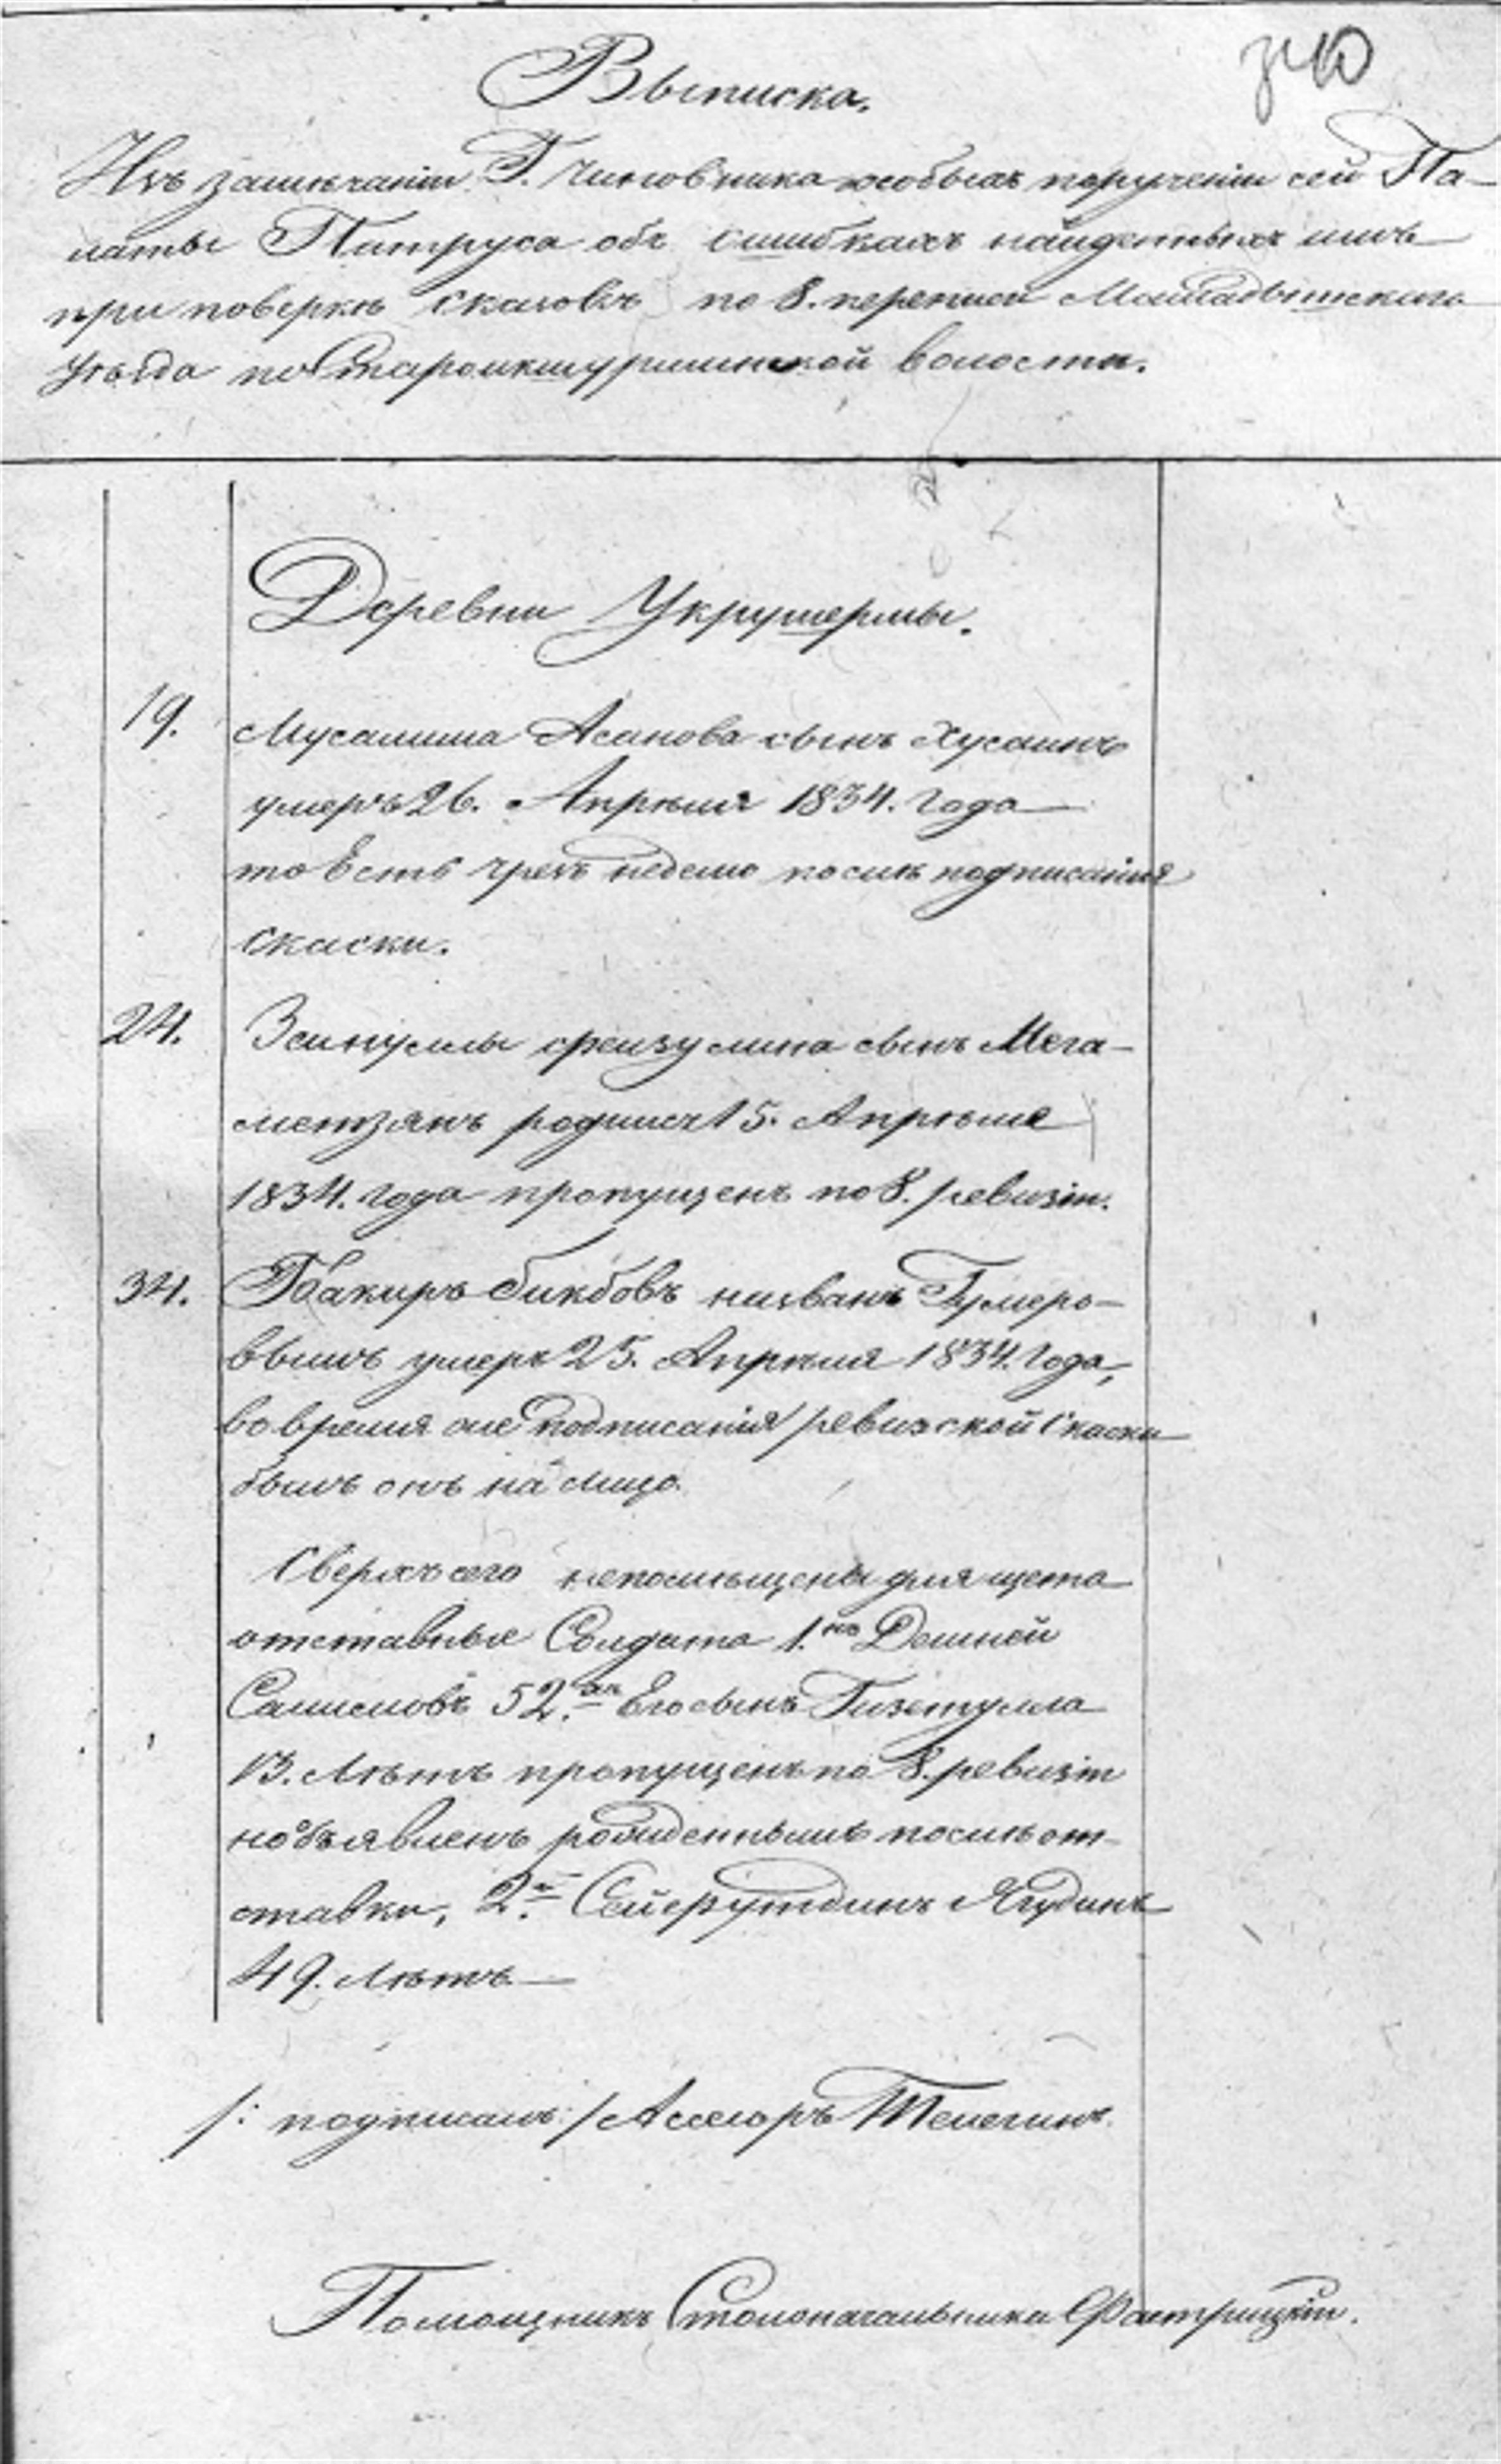 340
Выписка.
Изъ замечанiи Г. Чиновника особыхъ порученiи сей Па-
латы Питруса объ ошибкахъ найденныхъ имъ
при поверке сказокъ по 8. переписи Мамадышскаго
уезда по Староикшурминской волости.
Деревни Укрушермы.
19. Мусалима Асанова сынъ Хусаинъ
умеръ 26. Апреля 1834. года
то есть чрезъ неделю после подписанiя
скаски.
24. Зейнуллы фейзулина сынъ Мега-
метзянъ родился 15. Апреля
1834. года пропущенъ по 8. ревизiи.
34. Бакиръ бикбовъ названъ Гумеро-
вымъ умеръ 25. Апреля 1834. года,
во время же подписанiя ревизской Скаски
былъ онъ на лицо.
Сверхъ сего непомещены для щета
отставные Солдата 1.
Салимовъ 52. Его сынъ Гизетулла
13. Летъ пропущенъ по 8. ревизiи
но объявленъ рожденнымъ после от-
ставки, 2.й Сейфутдинъ Ягудинъ
49. Летъ
/: подписалъ:/ Асесоръ Телегинъ
Помощникъ Столоначальника